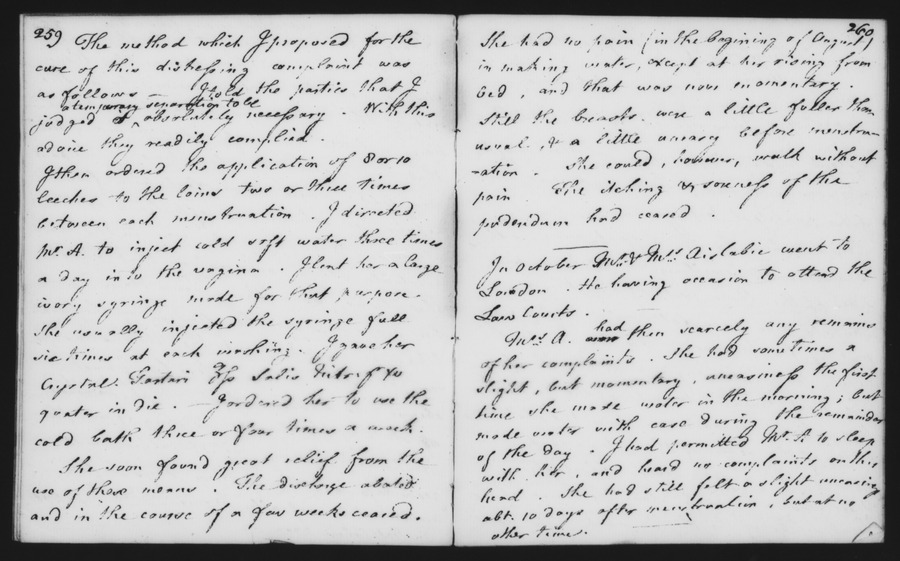 259
The method which I proposed for the
cure of this distressing complaint was
as follows — I told the parties that I
a temporary separation to be
judged absolutely necessary. With this
advice they readily complied.
I then ordered the application of 8 or 10
leeches to the loins two or three times
between each menstruation. I directed
Mrs A. to inject cold soft water three times
a day into the vagina. I lent her a large
ivory syringe made for that purpose.
She usually injected the syringe full
six times at each inroking. I gave her
Crystal. Tartari ʒſs Salis Nitri gr xv
quater in die. — I ordered her to use the
cold bath three or four times a week.
She soon found great relief from the
use of these means. The discharge abated
and in the course of a few weeks ceased.
260
She had no pain (in the begining of August)
in making water, except at her rising from
bed, and that was now momentary.
Still the breasts were a little fuller than
usual, & a little uneasy before menstru-
-ation. She could, however, walk without
pain. The itching & soreness of the
pudendum had ceased.
In October Mr. & Mrs. Aislabie went to
London. He having occasion to attend the
Law Courts.
had
Mrs. A. then scarcely any remains
of her complaints. She had sometimes a
slight, but momentary, uneasiness the first
time she made water in the morning; but
made water with ease during the remainder
of the day. I had permitted Mr. A to sleep
with her, and heard no complaints on this
head. She had still felt a slight uneasiness
abt. 10 days after menstruation, but at no
other time.